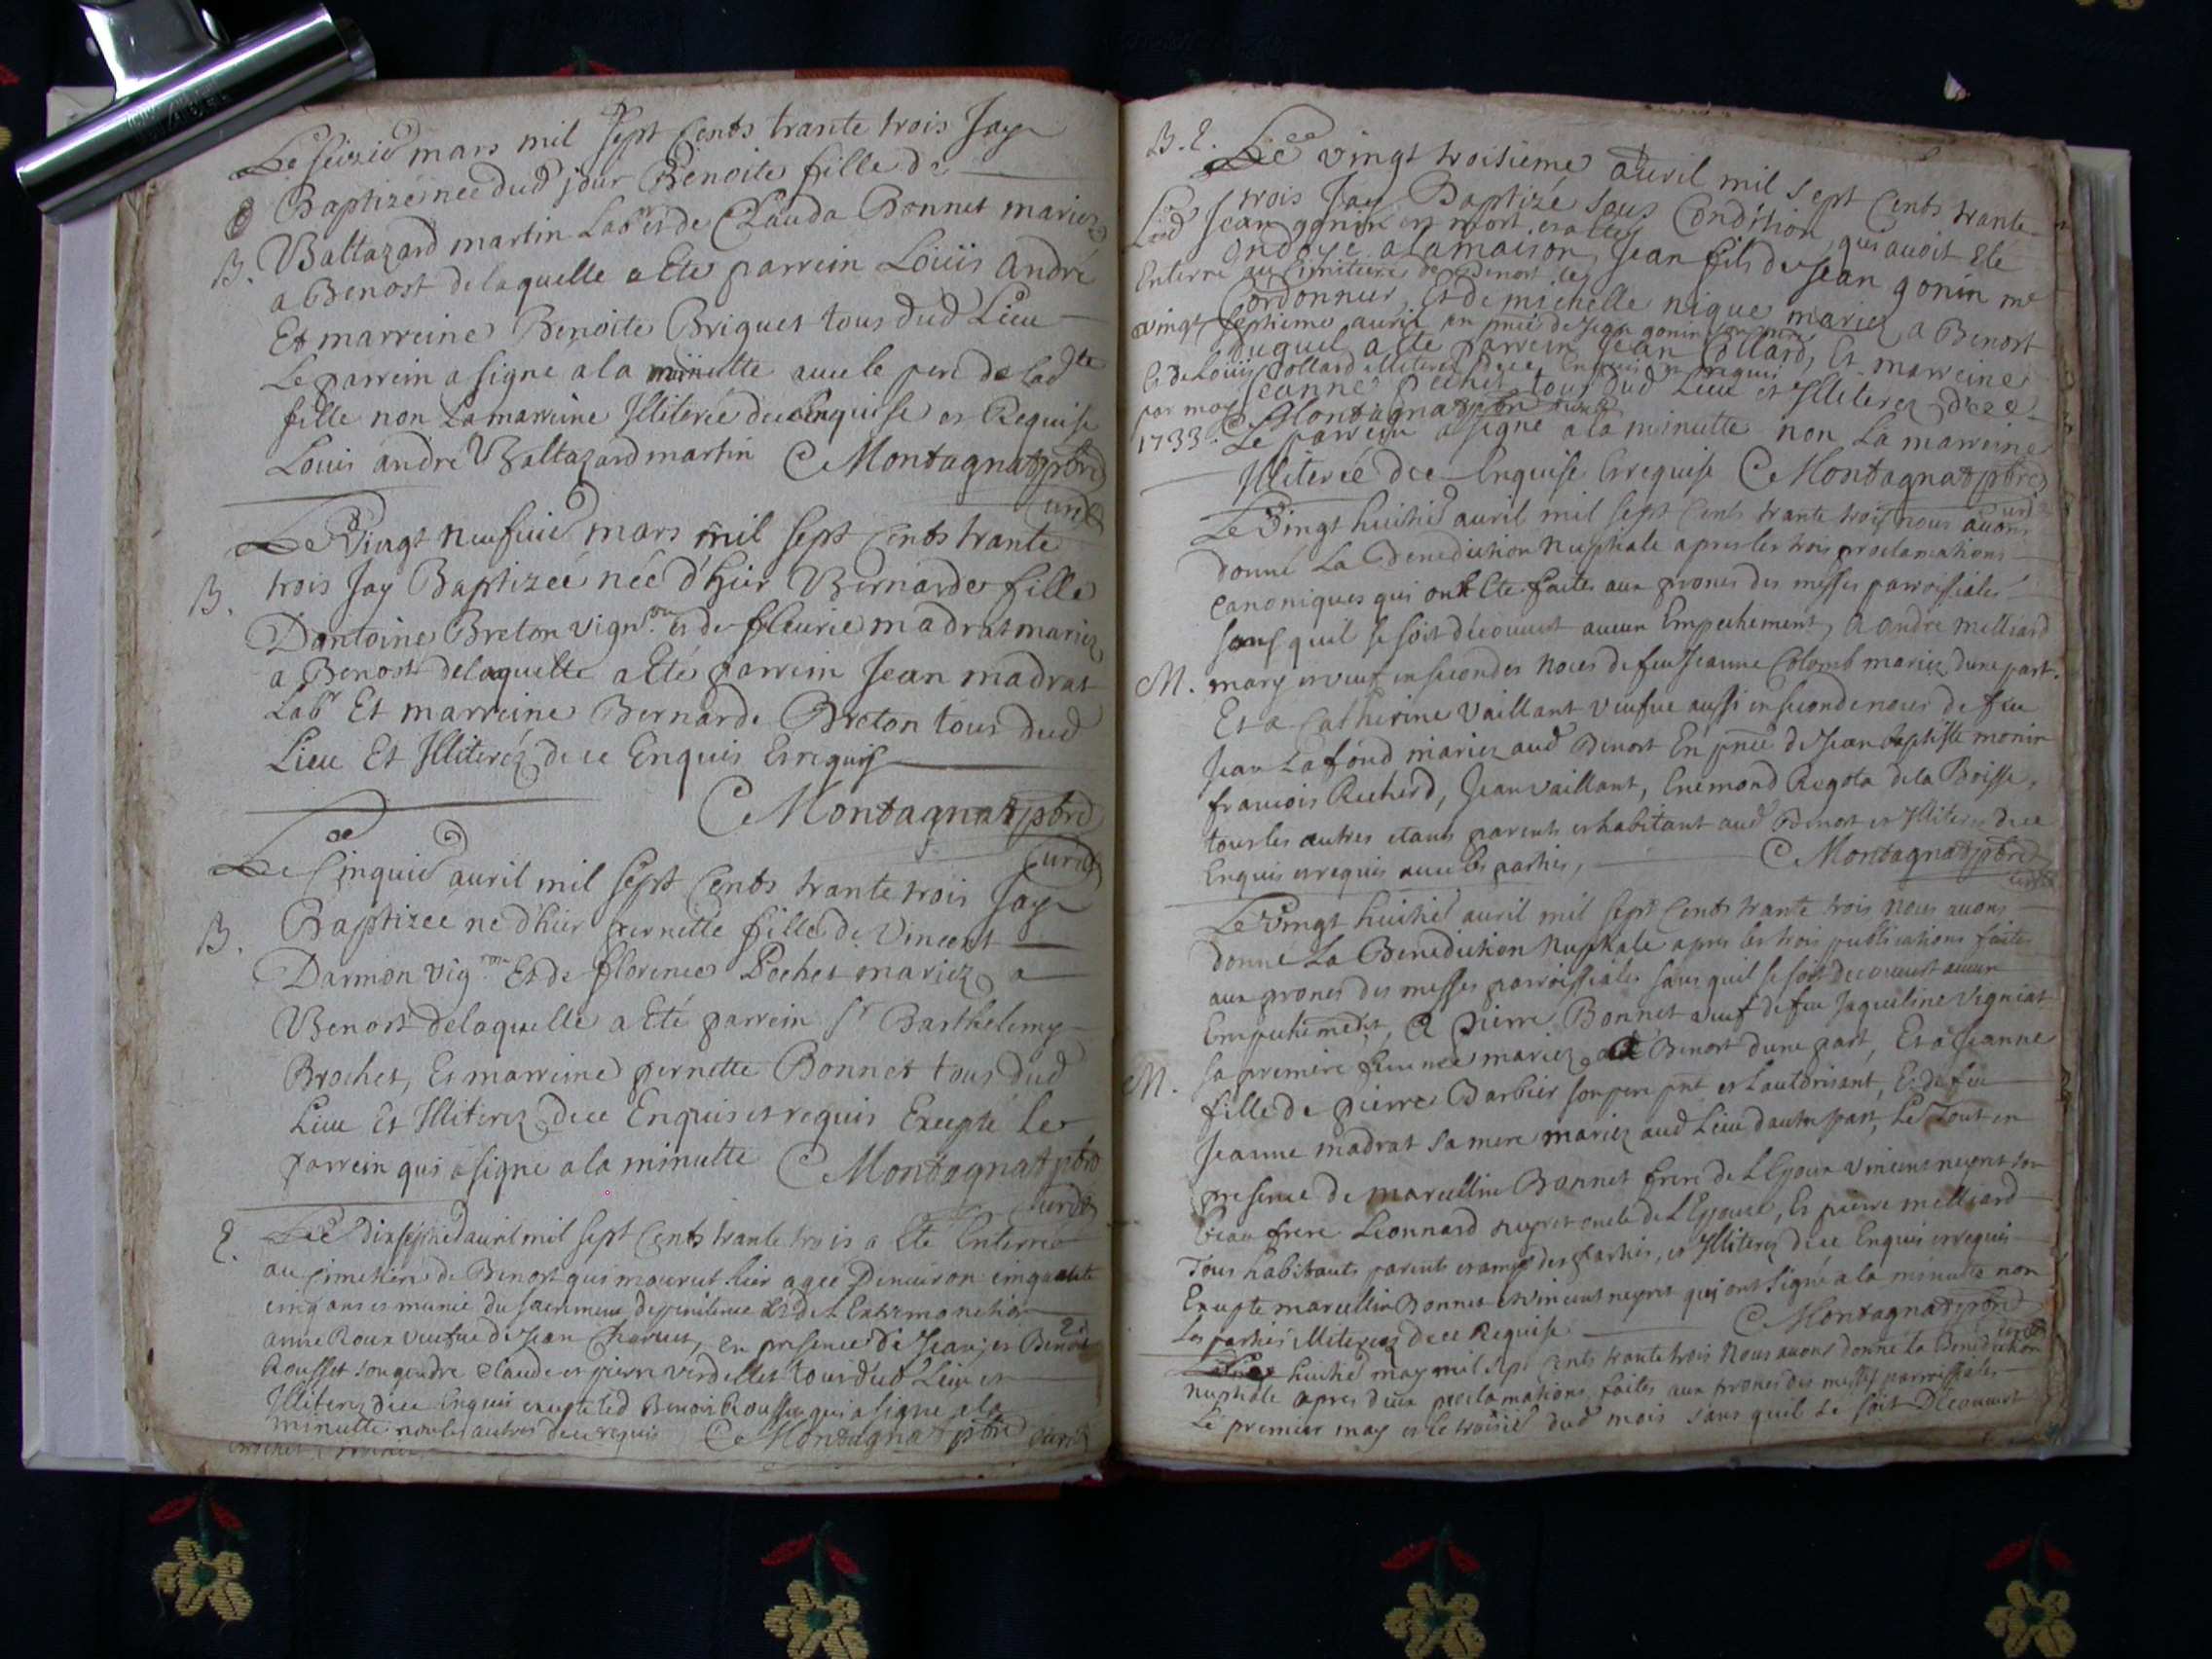 Le seizie mars mil sept Cents trante trois Jay
Baptizé née dud jour Benoite fille de
B. Baltazard martin Labr et de Clauda Bonnet mariez
a Benost de laquelle a Eté parrein Loüis andré
Et marreine Benoite Briguet tous dud Lieu
Le parrein a signé a la minutte avec le pere de lad
fille non La marreine Illiterée de ce enquise et Requise
Louis andré Baltazard martin Montagnat ptre
curé
Le Vingt neufvie mars mil sept Cents trante
B. trois Jay Baptizeé née d'hier Bernarde fille
D'antoine Breton vign.on et de fleurie madrat mariez
a Benost de laquelle a Eté parrein Jean madrat
Labr Et marreine Bernarde Breton tous dud
Lieu Et Illiteréz de ce Enquis Et requis
Montagnat ptre
curé
Le Cinquie avril mil sept Cents trante trois Jay
B. Baptizeé ne d'hier pernette fille de Vincent
Darmon vig.on Et de florence Pochet mariez a
Benost de laquelle a Eté parrein Sr Barthelemy
Brochet, Et marreine pernette Bonnet tous dud
Lieu Et Illiterez de ce Enquis et requis Excepté Le
parrein qui a signé a la minutte Montagnat ptre
curé
E. Le dix septie avril mil sept Cents trante trois a Eté Enterré
au Cimetiere de Benost qui mourut hier agée Denviron cinquante
cinq ans et munie du sacrement de penitence Et de L Extremonction
anne Roux veufve de Jean Charvet, en presence de Jean, et Benoit
Rousset son gendre Claude et pierre verdellet tous dud Lieu et
Illiterez de ce Enquis excepté led Benoit Rousset qui a signé a la
minutte non les autres de ce requis Montagnat ptre curé
B. E. Le vingt troisieme avril mil sept Cents trante
trois Jay Baptizé sous Condition, qui avoit Eté
Led Jean gonin est mort et a eté
ondoyé a la maison, Jean fils de Jean gonin me
Enterré au Cimitiere de Benost le
Cordonnier, Et de michelle nique mariez a Benost
vingt septieme avril en pnce de Jean gonin son pere
duquel a Eté parrein Jean Collard, Et marreine
Et de Loüis Collard illiterez de ce Enquis et requis
Jeanne Pechet tous dud Lieu et Illiterez de ce
par moy Montagnat ptre curé
1733. Le parrein a signé a la minutte non La marreine
Illiterée de ce Enquise Et requise Montagnat ptre
curé
Le Vingt huitie avril mil sept Cents trante trois nous avons
donné La Benediction Nuptiale apres les trois proclamations
Canoniques qui ont Eté faites aux prones des messes parroissiales
sans quil se soit découvert aucun Empechement, a andré milliard
M. mary et veuf en secondes noces de feu Jeanne Colomb mariez dune part.
Et a Catherine Vaillant veufve aussi en seconde noces de feu
Jean Lafond mariez aud Benost En pnce de Jean baptiste monin
francois Recherd, Jean vaillant, Enemond Regota de la Boisse,
tous les autres etants parents et habitant aud Benost et Illiterez de ce
Enquis et requis avec les parties, Montagnat ptre
curé
Le Vingt huitie avril mil sept Cents trante trois nous avons
donné La Benediction Nuptiale apres les trois publications faites
aux prones des messes parroissiales sans quil se soit decouvert aucun
Empechement, a Pierre Bonnet veuf de feu Jaqueline Vigniat
sa premiere femme mariez a Benost dune part, Et a Jeanne
M. fille de pierre Barbier son pere pnt et Lautorisant, Et de feu
Jeanne madrat sa mere mariez aud Lieu dautre part, Le Tout en
presence de marcellin Bonnet frere de L Epoux vincent neyret son
beau frere Leonnard neyret oncle de L Epouse, Et pierre milliard
Tous habitants parents et amys des parties, et Illiterez de ce Enquis et requis
Excepte marcellin Bonnet et vincent neyret qui ont signé a la minutte non
Les parties illiterées de ce Requise Montagnat ptre
curé
Le huitie may mil sept Cents trante trois Nous avons donné la Benediction
nuptiale apres deux proclamations faites aux prones des messes parroissiales
Le premier may et le troisie dud mois sans quil se soit Découvert